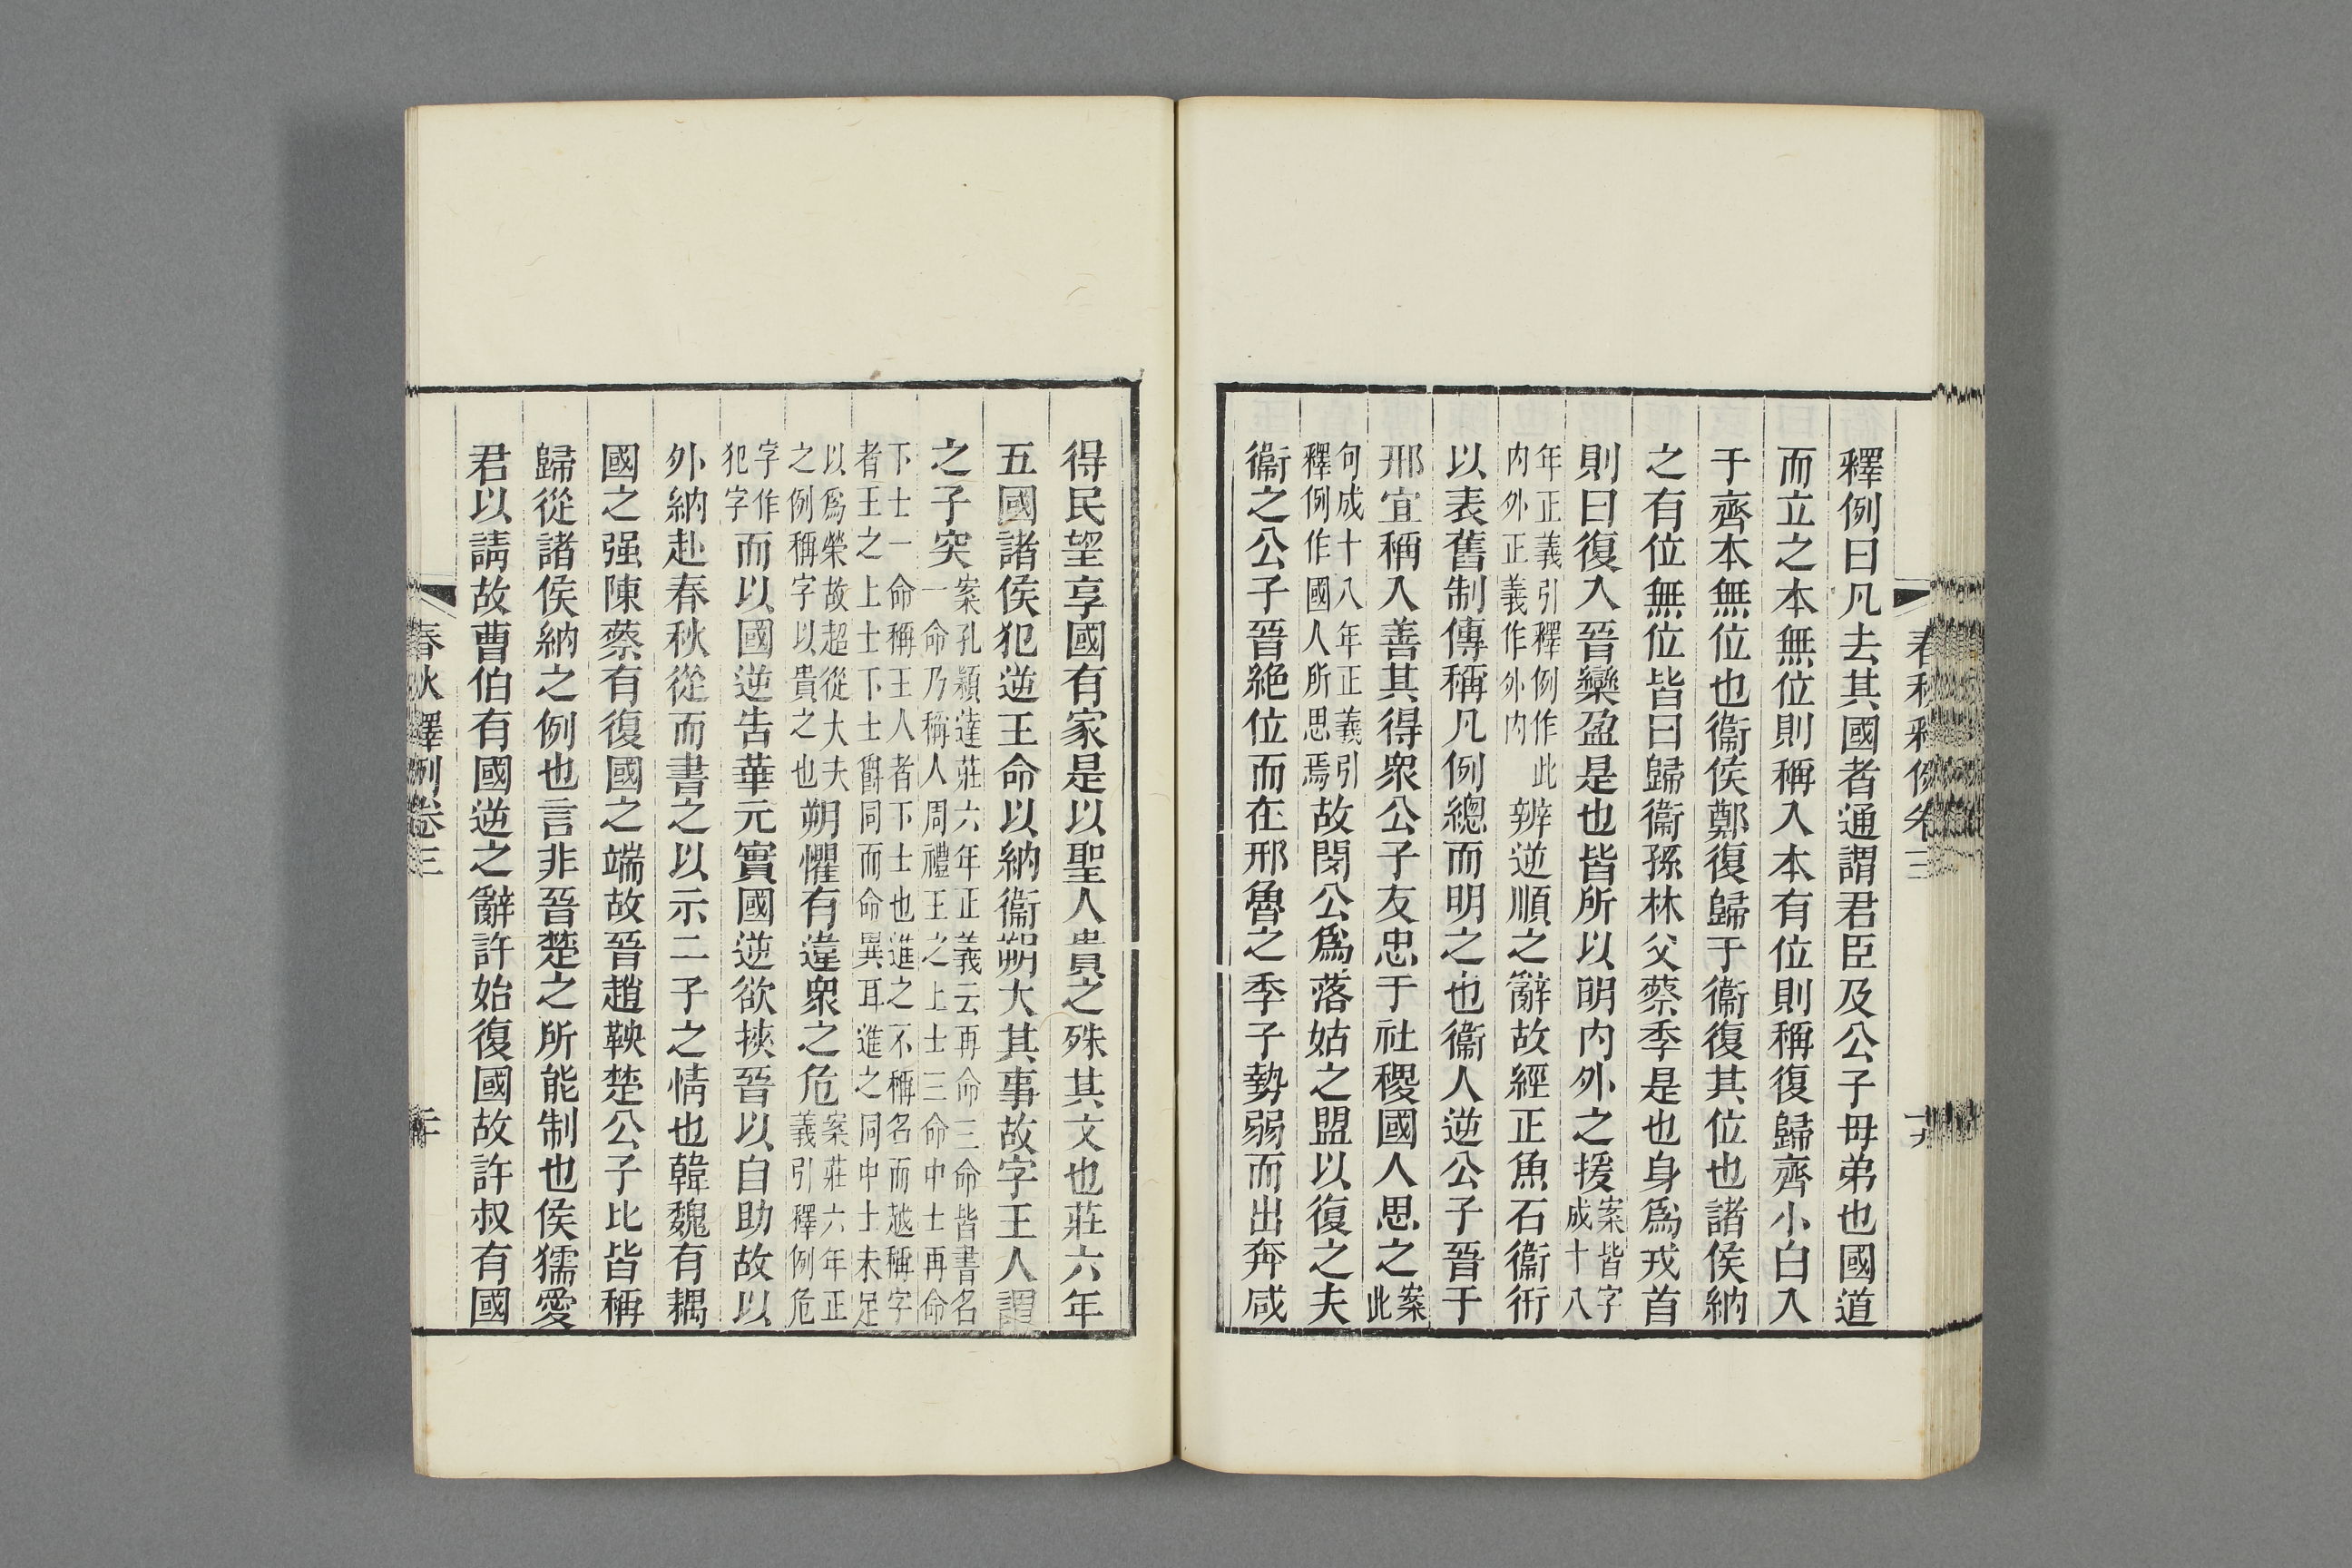 釋例曰凡去其國者通謂君臣及公子母弟也國道
而立之本無位則稱入本有位則稱復歸齊小白入
于齊本無位也衞侯鄭復歸于衞復其位也諸侯納
之有位無位皆曰歸衞孫林父蔡季是也身爲戎首
則曰復入晉欒盈是也皆所以明內外之援案皆字成十八
年正義引釋例作此內外正義作外內辨逆順之辭故經正魚石衞衎
以表舊制傳稱凡例總而明之也衞人逆公子晉于
邢宜稱入善其得衆公子友忠于社稷國人思之案此
句成十八年正義引釋例作國人所思焉故閔公爲落姑之盟以復之夫
衞之公子晉絶位而在邢魯之季子勢弱而出奔咸
春秋釋例卷三
十九
得民望享國有家是以聖人貴之殊其文也莊六年
五國諸侯犯逆王命以納衞朔大其事故字王人謂
之子突案孔穎達莊六年正義云再命三命皆書名一命乃稱人周禮王之上士三命中士再命
下士一命稱王人者下士也進之不稱名而越稱字者王之上士下士爵同而命異耳進之同中士未足
以爲榮故超從大夫之例稱字以貴之也朔懼有違衆之危案莊六年正義引釋例危
字作犯字而以國逆告華元實國逆欲挾晉以自助故以
外納赴春秋從而書之以示二子之情也韓魏有耦
國之强陳蔡有復國之端故晉趙鞅楚公子比皆稱
歸從諸侯納之例也言非晉楚之所能制也侯獳愛
君以請故曹伯有國逆之辭許始復國故許叔有國
春秋釋例卷三
二十